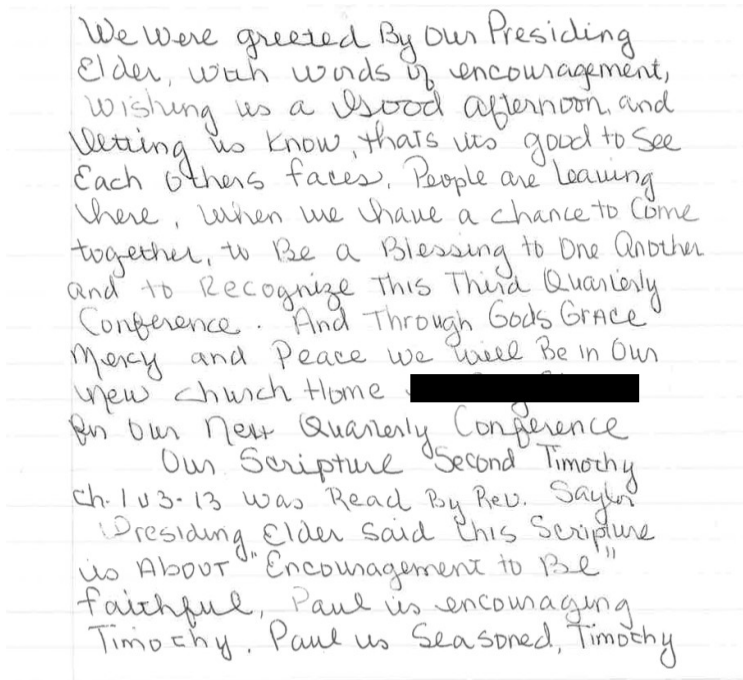 We were greeted By Our Presiding
Elder, with words of encouragement,
wishing us a Good afternoon, and
letting us know, thats its good to See
Each others faces. People are leaving
here, when we have a chance to Come
together, to Be a Blessing to One Another
and to Recognize This Third Quarterly
Conference. And Through Gods Grace
Mercy and Peace we will Be in Our
new church Home
for our next Quarterly Conference
Our Scripture Second Timothy
ch. 1 v 3-13 was Read By Rev. Saylor
Presiding Elder said this Scripture
is About "Encouragement to Be"
faithful, Paul is encouraging
Timothy. Paul is Seasoned, Timothy